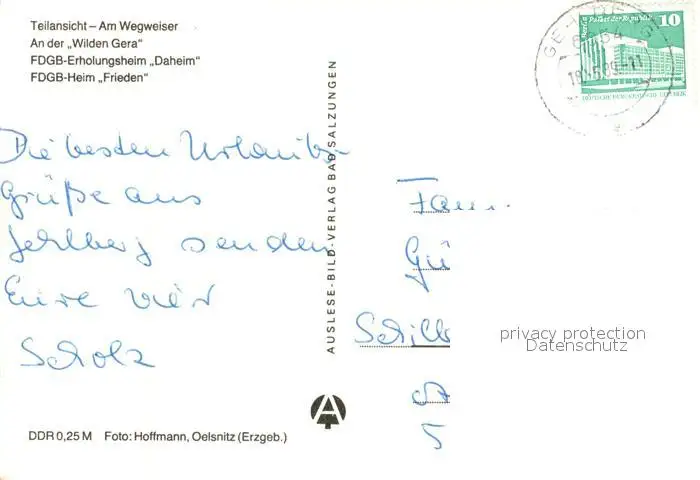 Teilansicht – Am Wegweiser
An der „Wilden Gera“
FDGB-Erholungsheim „Daheim“
FDGB-Heim „Frieden“
Berlin, Palast der Republik 10
DEUTSCHE DEMOKRATISCHE REPUBLIK
Die besten Urlaubs-
Grüße aus
Gehlberg senden
Eure vier
Scholz
AUSLESE-BILD-VERLAG BAD SALZUNGEN
Fam
Gü
Schill
5
privacy protection
Datenschutz
DDR 0,25 M Foto: Hoffmann, Oelsnitz (Erzgeb.)